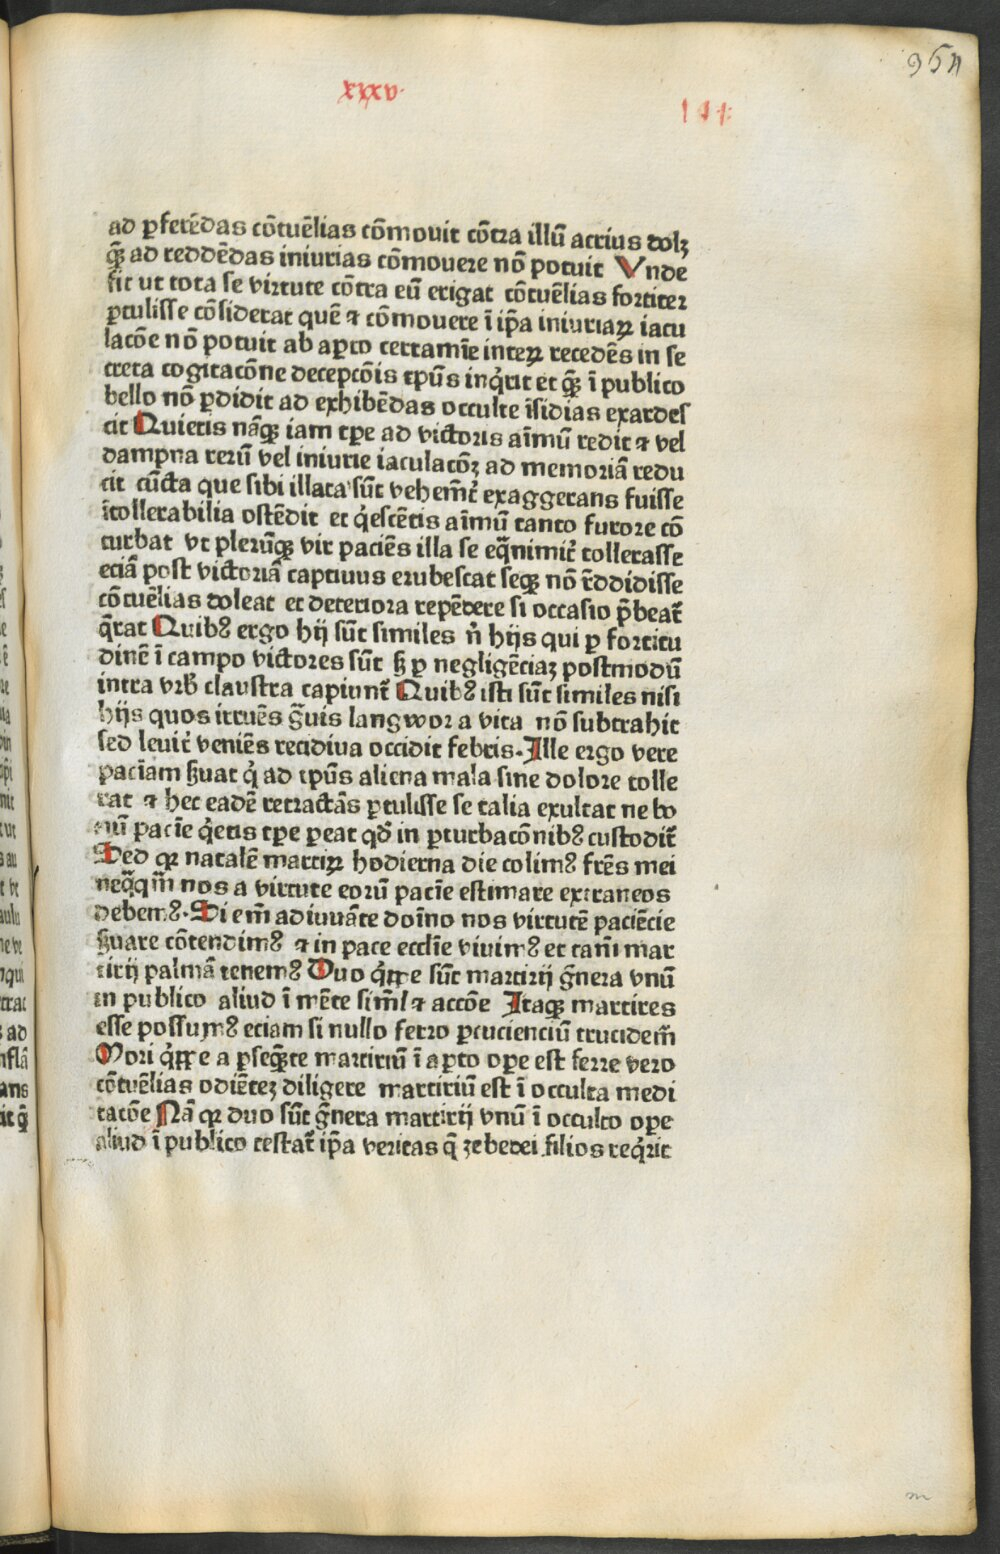 xxxv.
954
ad ꝑferēdas cōtuēlias cōmovit cōtra illū acrius dolꝫ
qꝫ̄ ad reddēdas iniurias cōmovere nō potuit Vnde
fit ut tota se virtute cōtra eū erigat cōtuēlias fortiter
ꝑtulisse cōsiderat quē ⁊ cōmovere ī ip̄a iniuriaꝝ iacu
lacōe nō potuit ab aꝑto certamīe inteꝝ recedēs in se
creta cogitacōne decepcōis tp̄us inq̇rit et qꝫ̄ ī publico
bello nō ꝑdidit ad exhibēdas occulte īsidias exardes
cit Quietis nāqꝫ iam tꝑe ad victoris aīmū redit ⁊ vel
dampna rerū vel iniurie iaculacōꝫ ad memoriā redu
cit cūcta que sibi illata sūt vehem̄t᷒ exaggerans fuisse
ītollerabilia ostēdit et q̇escētis aīmū tanto furore cō
turbat vt plerūqꝫ vir paciēs illa se eq̄nimit᷒ tollerasse
eciā post victoriā captiuus erubescat seqꝫ nō r̄ddidisse
cōtuēlias doleat et deteriora repēdere si occasio p̄beat᷒
q̄rat Quibꝰ ergo hij sūt similes n̄ hijs qui ꝑ fortitu
dinē ī campo victores sūt ꜩ ꝑ negligēciaꝫ postmodū
intra vrb̄ claustra capiunt᷒ Quibꝰ isti sūt similes nisi
hijs quos irruēs g̃uis langwor a vita nō subtrahit
sed leuit᷒ veniēs recidiua occidit febris. Ille ergo vere
paciāam ẜuat q̇ ad tp̄us aliena mala sine dolore tolle
rat ⁊ hec eadē retractās ꝑtulisse se talia exultat ne bo
nū pacīe q̇etis tꝑe ꝑeat qd̄ in ꝑturbacōnibꝰ custodit᷒
Sed qꝛ natalē martiꝝ hodierna die colimꝰ fr̄es mei
neq̄qm̄ nos a virtute eorū pacīe estimare extraneos
debemꝰ. Si em̄ adiuuāte doīno nos virtutē paciēcie
ẜuare cōtendimꝰ ⁊ in pace ecclīe vivimꝰ et tam̄ mar
tirij palmā tenemꝰ Duo q̇ꝓe sūt martirij g̃nera vnū
in publico aliud ī mēte sim̄l ⁊ accōe Itaqꝫ martires
esse possumꝰ eciam si nullo ferro ꝑcucienciū trucidem̄
Mori q̇ꝓe a ꝑseq̄te martiriū ī aꝑto oꝑe est ferre vero
cōtuēlias odiētēꝫ diligere martiriū est ī occulta medi
tacōe Nā qꝛ duo sūt g̃nera martirij vnū ī occulto oꝑe
aliud ī publico testat᷒ ip̄a veritas q̄ zebedei filios req̇rit